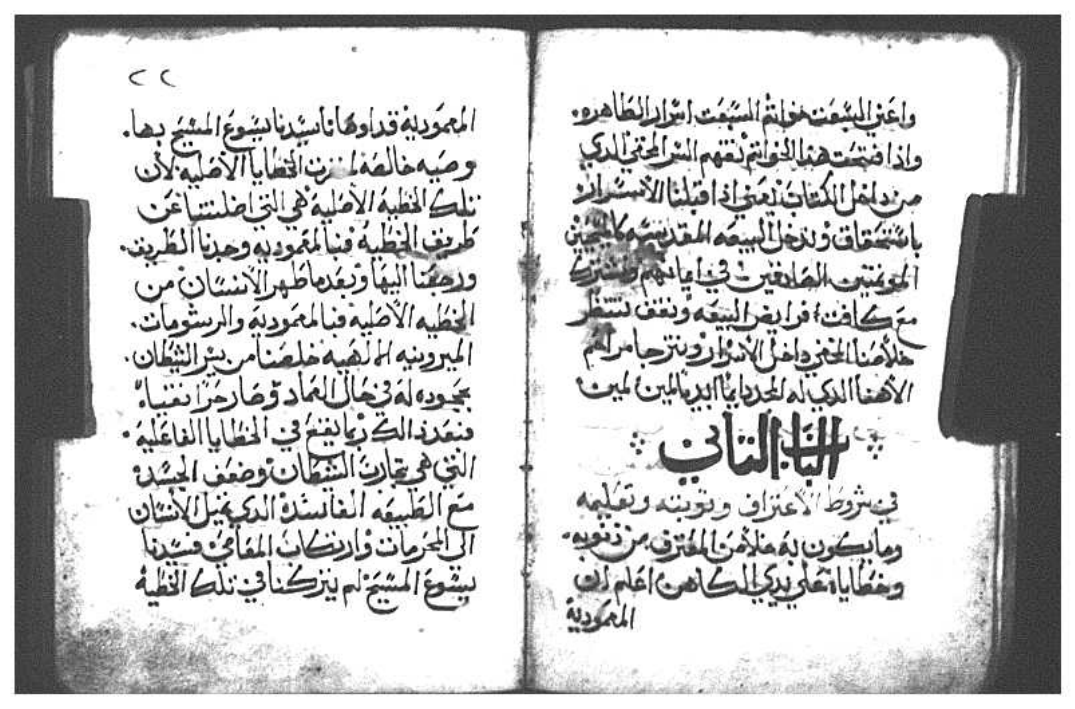 واعني السبعت خواتم السبعت اسرار الطاهره.
واذا فتحت هذا الخواتم نفهم السر المخفي الدي
من داخل الكتاب نعني اذا قبلنا الاسرار
باستحقاق وندخل البيعه المقدسه كالمسحيين
المومنين الصادقين في ايمانهم ونشترك
مع كافت فرايض البيعه ونقف ننتظر
خلاصنا الخفي داخل الاسرار ونترجا مراحم
الاهنا الدي له المجد دايما ابديا امين امين
الباب التاني
في شروط الاعتراف وتوبته وتعليمه
وما يكون به خلاص المعترف من دنوبه.
وخطاياه علي يدي الكاهن اعلم ان
المعموديه
٢٢
المعموديه قد اوهبنا سيدنا يسوع المسيح بها.
وصيه خالصه لمن الخطايا الاصليه لان
تلك الخطيه الاصليه هي التي اضلتنا عن
طريق الخطيه فبالمعموديه وجدنا الطريق.
ورجعنا اليها وبعد ما طهر الانسان من
الخطيه الاصليه فبالمعموديه والرشومات.
الميرونيه الالهيه خلصنا من بير الشيطان.
بجحوده له في حال العماد وصار حرا نقيا
فبعد ذالك ربما يقع في الخطايا الفاعليه.
التي هي بتجارب الشيطان وضعف الجسد
مع الطبيعه الفاسده الدي تميل الانسان
الي المحرمات وارتكاب المعاصي فسيدنا
يسوع المسيح لم يتركنا في تلك الخطيه